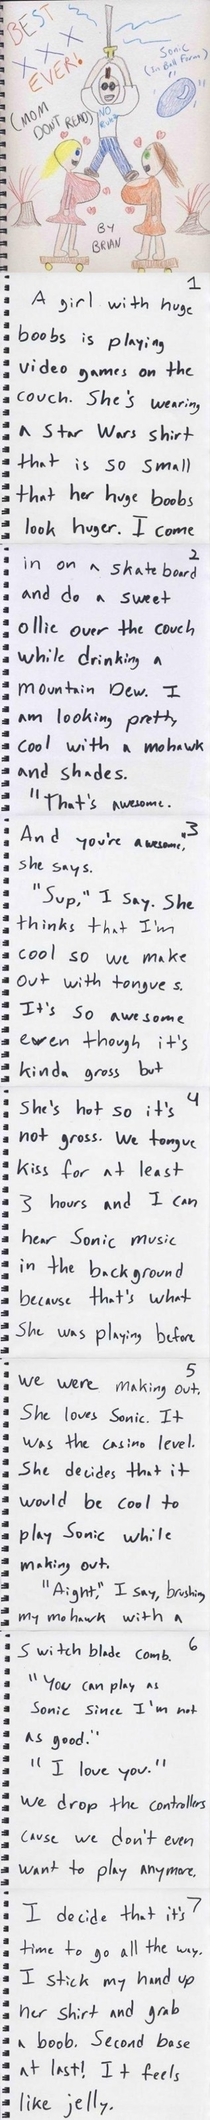 BEST
XXX
EVER!
(MOM
DON'T READ)
NO
RULES
Sonic
(In Ball Form)
BY
BRIAN
1
A girl with huge
boobs is playing
video games on the
couch. She's wearing
a Star Wars shirt
that is so small
that her huge boobs
look huger. I come
2
in on a skateboard
and do a sweet
ollie over the couch
while drinking a
Mountain Dew. I
am looking pretty
cool with a mohawk
and shades.
"That's awesome.
3
And you're awesome,"
she says.
"Sup," I say. She
thinks that I'm
cool so we make
out with tongues.
It's so awesome
even though it's
kinda gross but
4
she's hot so it's
not gross. We tongue
kiss for at least
3 hours and I can
hear Sonic music
in the background
because that's what
she was playing before
5
we were making out.
She loves Sonic. It
was the casino level.
She decides that it
would be cool to
play Sonic while
making out.
"Aight," I say, brushing
my mohawk with a
6
switch blade comb.
"You can play as
Sonic since I'm not
as good."
"I love you."
We drop the controllers
cause we don't even
want to play anymore.
7
I decide that it's
time to go all the way.
I stick my hand up
her shirt and grab
a boob. Second base
at last! It feels
like jelly.